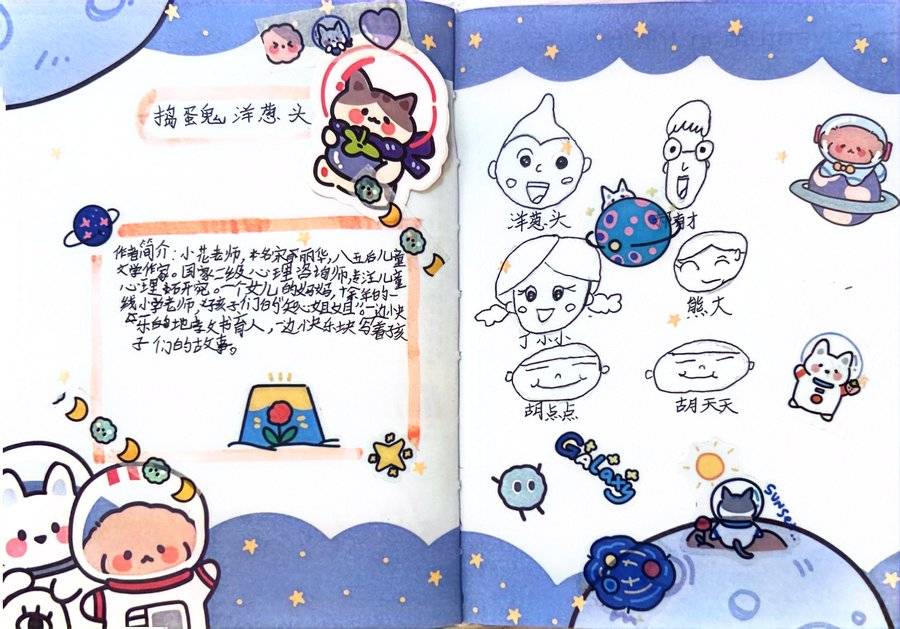 捣蛋鬼洋葱头
作者简介：小花老师，本名宋丽华，八五后儿童
文学作家。国家二级心理咨询师，专注儿童
心理研究。一个女儿的好妈妈，十余年的一
线小学老师，好孩子们的“知心姐姐”。一边快
乐的地教书育人，一边快乐块写着孩
子们的故事。
洋葱头
才
丁小小
熊大
胡点点
胡天天
Galaxy
SUNSET